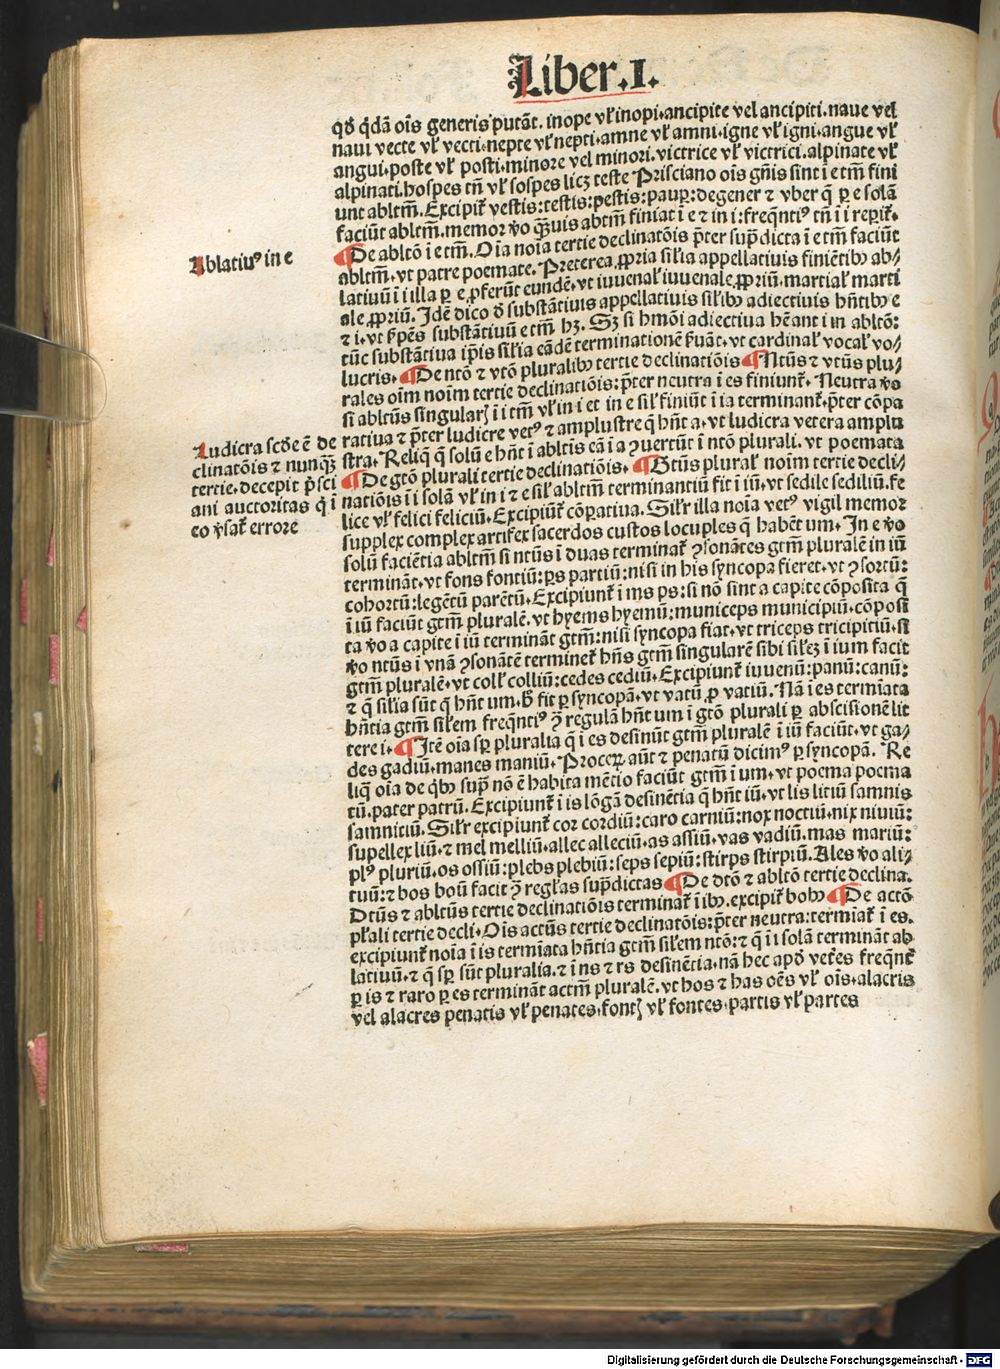 Liber .I.
qd̄ q̄dā oīs generis putāt. inope vl̄ inopi. ancipite vel ancipiti. naue vel
naui vecte vl̄ vecti. nepte vl̄ nepti. amne vl̄ amni. igne vl̄ igni. angue vl̄
angui. poste vl̄ posti. minore vel minori. victrice vl̄ victrici. alpinate vl̄
alpinati. hospes tn̄ vl̄ sospes licꝫ teste Prisciano oīs gn̄is sint ī e tm̄ fini
unt abltm̄. Excipit᷑ vestis: testis: pestis: paup̲: degener ⁊ vber q̄ p̲ e solā
faciūt abltm̄. memor v̄o q̄uis abtm̄ finiat ī e ⁊ in i: freq̄ntiꝰ tn̄ ī i rep̲it᷑.
Ablatiuꝰ in e
¶De abltō ī e tm̄. Oīa noīa tertie declinatōis p̄ter sup̄dicta ī e tm̄ faciūt
abltm̄. vt patre poemate. Preterea ꝓpria sil̄ia appellatiuis finiētibꝰ ab/
latiuū ī i illa p̲ e ꝓferūt eundē. vt iuuenal̄ iuuenale ꝓpriū. martial̄ marti
ale ꝓpriū. Idē dico d̄ substātiuis appellatiuis sil̄ibꝰ adiectiuis hn̄tibꝰ e
⁊ i. vt p̄n̄s substātiuū e tm̄ hꝫ. Sꝫ si hmōi adiectiua hēant i in abltō:
tūc substātiua ip̄is sil̄ia eādē terminationē ẜuāt. vt cardinal̄ vocal̄ vo/
lucris. ¶De ntō ⁊ vtō pluralibꝰ tertie declinatiōis ¶Ntūs ⁊ vtūs plu/
rales oīm noīm tertie declinatiōis: p̄ter neutra ī es finiunt᷑. Neutra v̄o
si abltūs singularꝭ ī i tm̄ vl̄ in i et in e sil̄ finiūt ī ia terminant᷑. p̄ter cōpa
Ludicra scd̄e ē de
clinatōis ⁊ nunq̄ꝫ
tertie. decepit p̄sci
ani auctoritas q̄ i
eo v̄sat᷑ errore
ratiua ⁊ p̄ter ludicre vetꝰ ⁊ amplustre q̄ hn̄t a. vt ludicra vetera amplu
stra. Reliq̄ q̄ solū e hn̄t ī abltis eā ī a ꝯuertūt ī ntō plurali. vt poemata
¶De gtō plurali tertie declinatiōis. ¶Gtūs plural̄ noīm tertie decli/
natiōis ī i solā vl̄ in i ⁊ e sil̄ abltm̄ terminantiū fit ī iū. vt sedile sediliū. fe
lice vl̄ felici feliciū. Excipiūt᷑ cōp̲atiua. Sil̄r illa noīa vetꝰ vigil memor
supplex complex artifex sacerdos custos locuples q̄ habēt um. In e v̄o
solū faciētia abltm̄ si ntūs ī duas terminat᷑ ꝯsonātes gtm̄ pluralē in iū
termināt. vt fons fontiū: ps partiū: nisi in his syncopa fieret. vt ꝯsortū:
cohortū: legētū parētū. Excipiunt᷑ ī ms ps: si nō sint a capite cōposita q̄
ī iū faciūt gtm̄ pluralē. vt hyems hyemū: municeps municipiū. cōposi
ta v̄o a capite ī iū termināt gtm̄: nisi syncopa fiat. vt triceps tricipitiū. si
v̄o ntūs ī vnā ꝯsonātē terminet᷑ hn̄s gtm̄ singularē sibi sil̄eꝫ ī ium facit
gtm̄ pluralē. vt coll̄ colliū: cedes cediū. Excipiunt᷑ iuuenū: panū: canū:
⁊ q̄ sil̄ia sūt q̄ hn̄t um. B̄ fit p̲ syncopā. vt vatū ꝓ vatiū. Nā ī es termīata
hn̄tia gtm̄ sil̄em freq̄ntiꝰ ꝯ̄ regulā hn̄t um ī gtō plurali p̲ abscisionē lit
tere i. ¶Itē oīa sp̲ pluralia q̄ ī es desinūt gtm̄ pluralē ī iū faciūt. vt ga/
des gadiū. manes maniū. Procerꝝ aūt ⁊ penatū dicimꝰ p̲ syncopā. Re
liq̄ oīa de q̄bꝰ sup̄ nō ē habita mētio faciūt gtm̄ ī um. vt poema poema
tū. pater patrū. Excipiunt᷑ ī is lōgā desinētia q̄ hn̄t iū. vt lis litiū samnis
samnitiū. Sil̄r excipiunt᷑ cor cordiū: caro carniū: nox noctiū. nix niuiū:
supellex liū. ⁊ mel melliū. allec alleciū. as assiū. vas vadiū. mas mariū:
plꝰ pluriū. os ossiū: plebs plebiū: seps sepiū: stirps stirpiū. Ales v̄o ali/
tuū: ⁊ bos boū facit ꝯ̄ regl̄as sup̄dictas ¶De dtō ⁊ abltō tertie declina.
Dtūs ⁊ abltūs tertie declinatiōis terminat᷑ ī ibꝰ. excipit᷑ bobꝰ ¶De actō
pl̄ali tertie decli. Oīs actūs tertie declinatōis: p̄ter neutra: termiat᷑ ī es.
excipiunt᷑ noīa ī is termīata hn̄tia gtm̄ sil̄em ntō: ⁊ q̄ ī i solā termināt ab
latiuū. ⁊ q̄ sp̲ sūt pluralia. ⁊ ī ns ⁊ rs desinētia. nā hec apd̄ vet᷑es freq̄nt᷑
p̲ is ⁊ raro p̲ es termināt actm̄ pluralē. vt hos ⁊ has oēs vl̄ oīs. alacris
vel alacres penatis vl̄ penates. fontꝭ vl̄ fontes. partis vl̄ partes
Digitalisierung gefördert durch die Deutsche Forschungsgemeinschaft - DFG